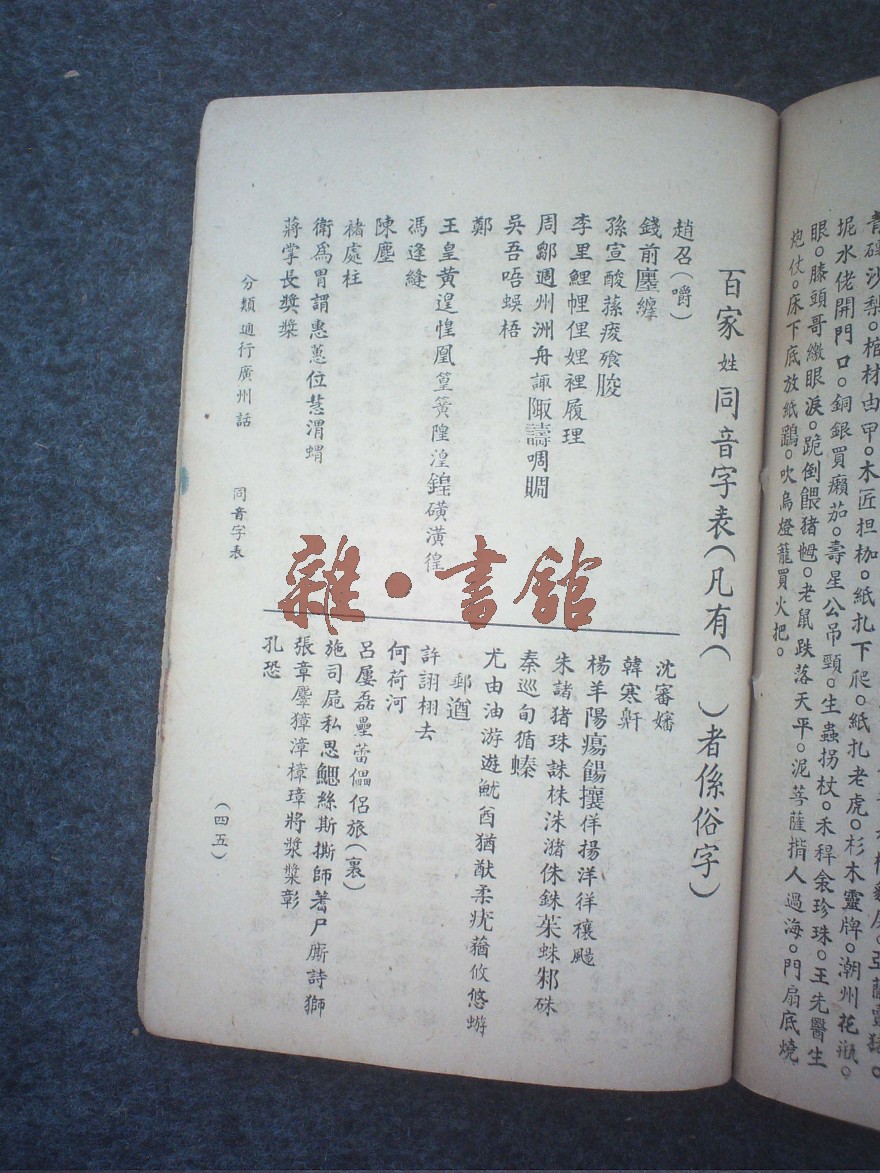 青磚沙梨。棺材由甲。木匠担枷。紙扎下爬。紙扎老虎。杉木靈牌。潮州花瓶。
坭水佬開門口。銅銀買癩茄。壽星公吊頸。生蟲拐杖。禾稈衾珍珠。王先醫生
眼。膝頭哥繳眼淚。跪倒餵猪乸。老鼠跌落天平。泥菩薩指人過海。門扇底燒
炮仗。床下底放紙鷂。吹烏燈籠買火把。
百家姓同音字表(凡有( )者係俗字)
趙召(嚼)
錢前廛纏
孫宣酸蓀痠飱朘
李里鯉悝俚娌裡履理
周鄒週州洲舟諏陬譸啁賙
吳吾唔蜈梧
鄭
王皇黄遑惶凰篁簧隍湟鍠磺潢徨
馮逢縫
陳塵
褚處柱
衛爲胃謂惠蕙位慧渭蝟
蔣掌長奬槳
沈審嬸
韓寒鼾
楊羊陽瘍餳攘佯揚洋徉禳颺
朱諸猪珠誅株洙潴侏銖茱蛛邾硃
秦巡旬循螓
尤由油游遊魷酉猶猷柔疣蕕攸悠蝣
郵遒
許詡栩去
何荷河
呂屢磊壘蕾儡侶旅(裹)
施司屍私思鰓絲斯撕師蓍尸廝詩獅
張章麞獐漳樟璋將漿槳彰
孔恐
分類通行廣州話 同音字表
(四五)
雜·書館